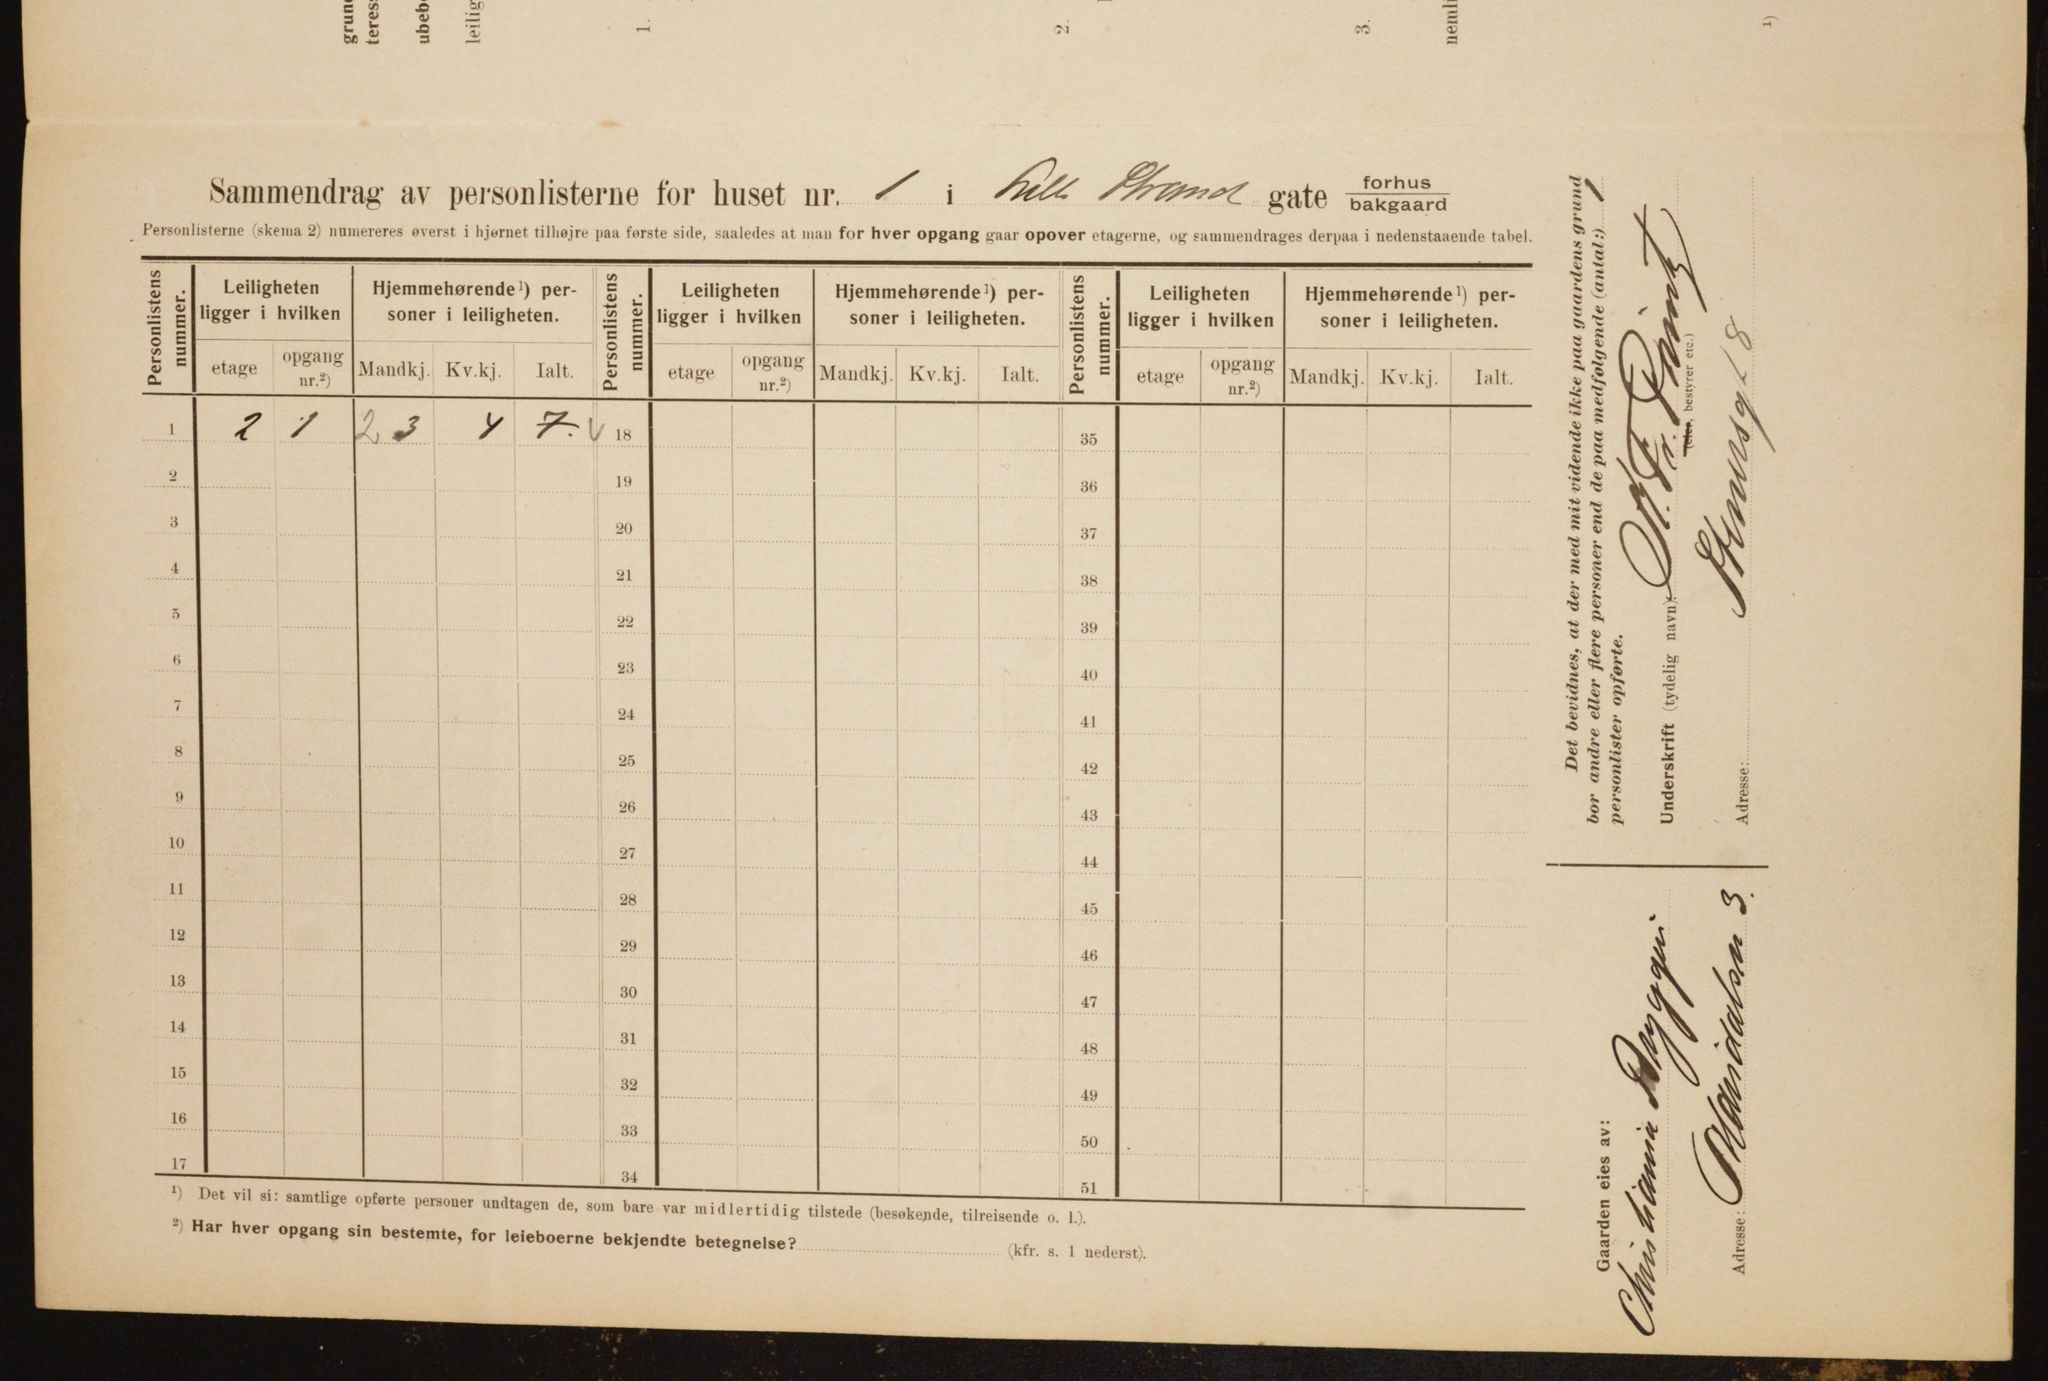 grun
teres
ubeb
leilig
1.
2.
3.
nemli
1)
Sammendrag av personlisterne for huset nr. 1 i Lille Strand gate forhus
bakgaard
Personlisterne (skema 2) numereres øverst i hjørnet tilhøjre paa første side, saaledes at man for hver opgang gaar opover etagerne, og sammendrages derpaa i nedenstaaende tabel.
Personlistens nummer. Leiligheten ligger i hvilken Hjemmehørende¹) personer i leiligheten. Personlistens nummer. Leiligheten ligger i hvilken Hjemmehørende¹) personer i leiligheten. Personlistens nummer. Leiligheten ligger i hvilken Hjemmehørende¹) personer i leiligheten.
etage opgang nr.²) Mandkj. Kv.kj. Ialt. etage opgang nr.²) Mandkj. Kv.kj. Ialt. etage opgang nr.²) Mandkj. Kv.kj. Ialt.
1 2 1 2 3 4 7. 18 35
2 19 36
3 20 37
4 21 38
5 22 39
6 23 40
7 24 41
8 25 42
9 26 43
10 27 44
11 28 45
12 29 46
13 30 47
14 31 48
15 32 49
16 33 50
17 34 51
¹) Det vil si: samtlige opførte personer undtagen de, som bare var midlertidig tilstede (besøkende, tilreisende o. l.).
²) Har hver opgang sin bestemte, for leieboerne bekjendte betegnelse? (kfr. s. 1 nederst).
Det bevidnes, at der med mit vidende ikke paa gaardens grund
bor andre eller flere personer end de paa medfølgende (antal:) 1
personlister opførte.
Underskrift (tydelig navn):
(eier, bestyrer etc.)
Adresse: 8
Gaarden eies av:
Christiania Bryggeri
Adresse: 3.